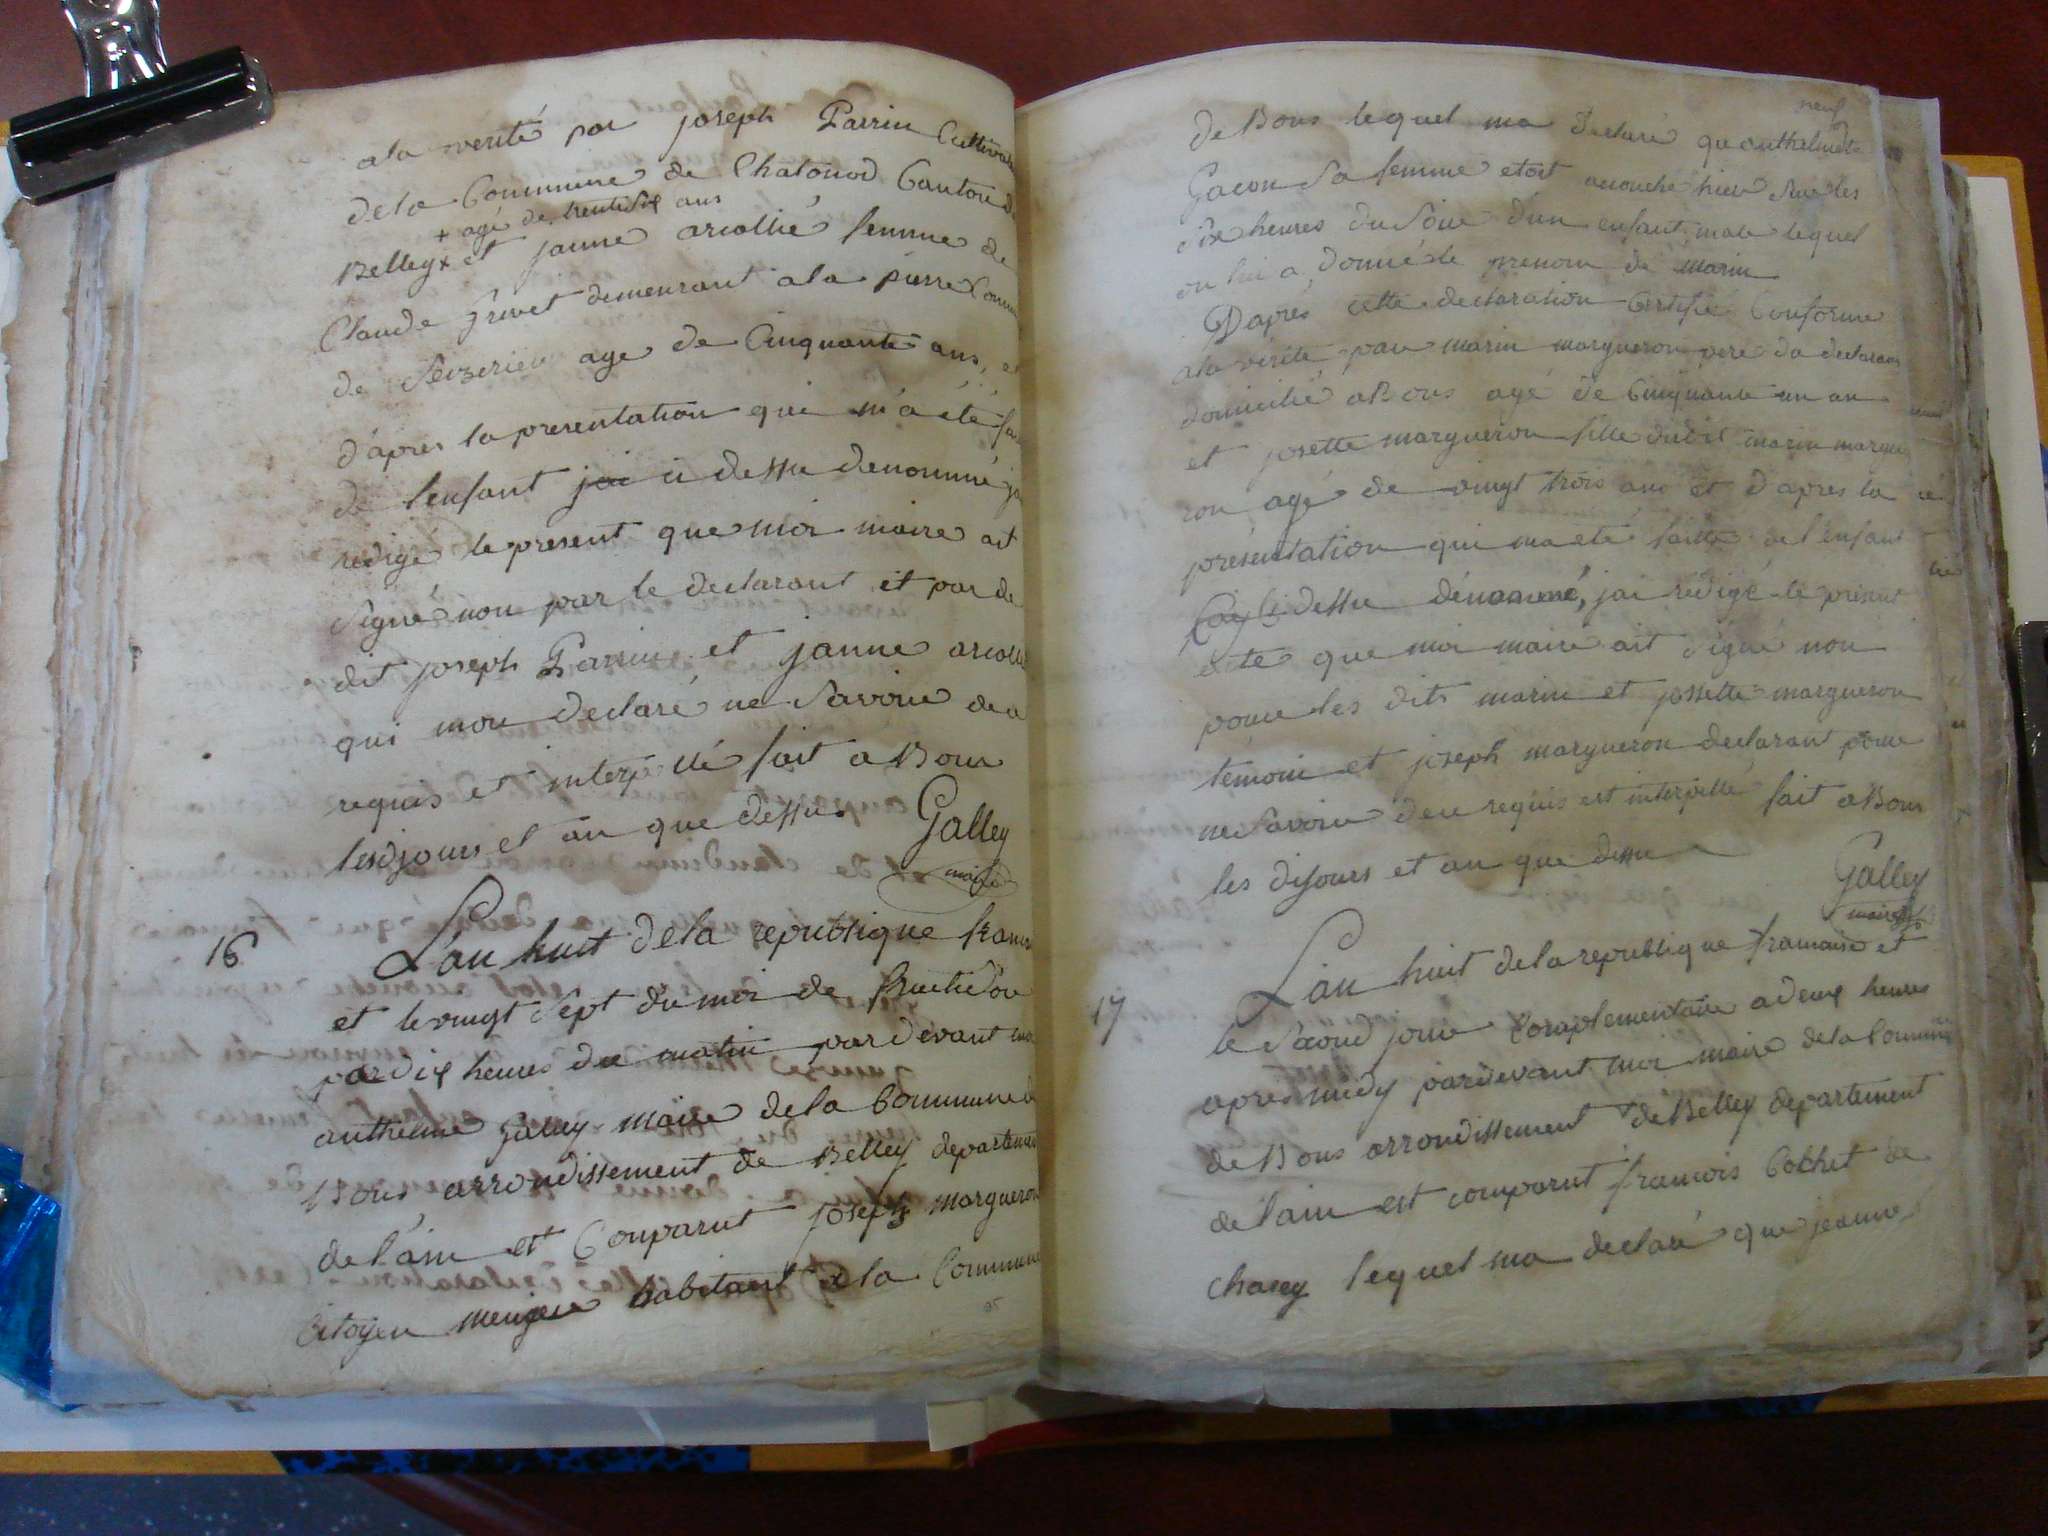 ala verité par joseph Parrin Cultivat
dela Commune de Chatonod Canton de
+ agé de trentesix ans
Belley + et janne arcollié femme de
Claude Grivet demeurant ala pierre Commu
de Seizerieu age de Cinquante ans, et
d'apres la presentation qui m'a été fai
de l'enfant jai ci dessu denommé jai
redigé le present que moi maire ait
Signé non par le declarant et par de
dit joseph Parrin et janne arcolli
qui mon declaré ne Savoire dea
requis et interpellé fait a Bons
lesdjours et an que dessus Galley
maire
16 L'an huit dela republique francai
et levingt Sept du moi de fructidor
par dix heures du matin par devant moi
anthelme Galley maire dela Commune de
Bons arrondissement de Belley departement
de l'ain et Comparut joseph margueron
Citoyen habitant a la Commune
neuf
de Bons lequel ma declaré que anthelmette
Gacon Sa femme etoit acouché hier Sur les
Six heures du Soire d'un enfant male lequel
on lui a donné le prenom de marin
D'apres cette declaration Certifié Conforme
ala vérité par marin margueron pere du declarant
domicilié a Bons agé de Cinquante un an
et josette margueron fille dudit marin margue
ron agé de vingt trois ans et d'apres la
présentation qui ma eté faitte de l'enfant
Cy dessu dénommé, jai rédigé le present
acte que moi maire ait Signé non
pour les dits marin et jossette margueron
temoin et joseph margueron declarant pour
ne Savoire deu requis est interpellé fait a Bons
les dijours et an que dessu Galley
maire
17 L'an huit dela republique framaise et
le Second jour Complementaire a deux heures
apres midy pardevant moi maire dela Commune
de Bons arrondissement de Belley departement
de l'ain est comparut francois Cochet de
Chazey lequel ma declaré que jeanne